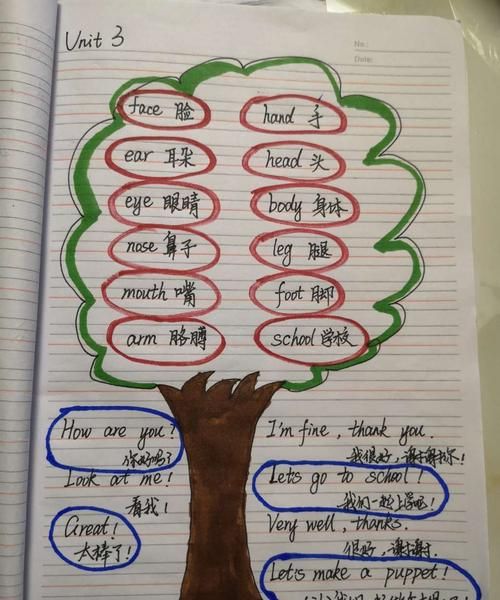 Unit 3
No.:
Date:
face 脸
hand 手
ear 耳朵
head 头
eye 眼睛
body 身体
nose 鼻子
leg 腿
mouth 嘴
foot 脚
arm 胳膊
school 学校
How are you?
你好吗?
I'm fine, thank you.
我很好,谢谢你!
Look at me!
看我!
Let's go to school!
我们一起上学吧!
Great!
太棒了!
Very well, thanks.
很好,谢谢.
Let's make a puppet!